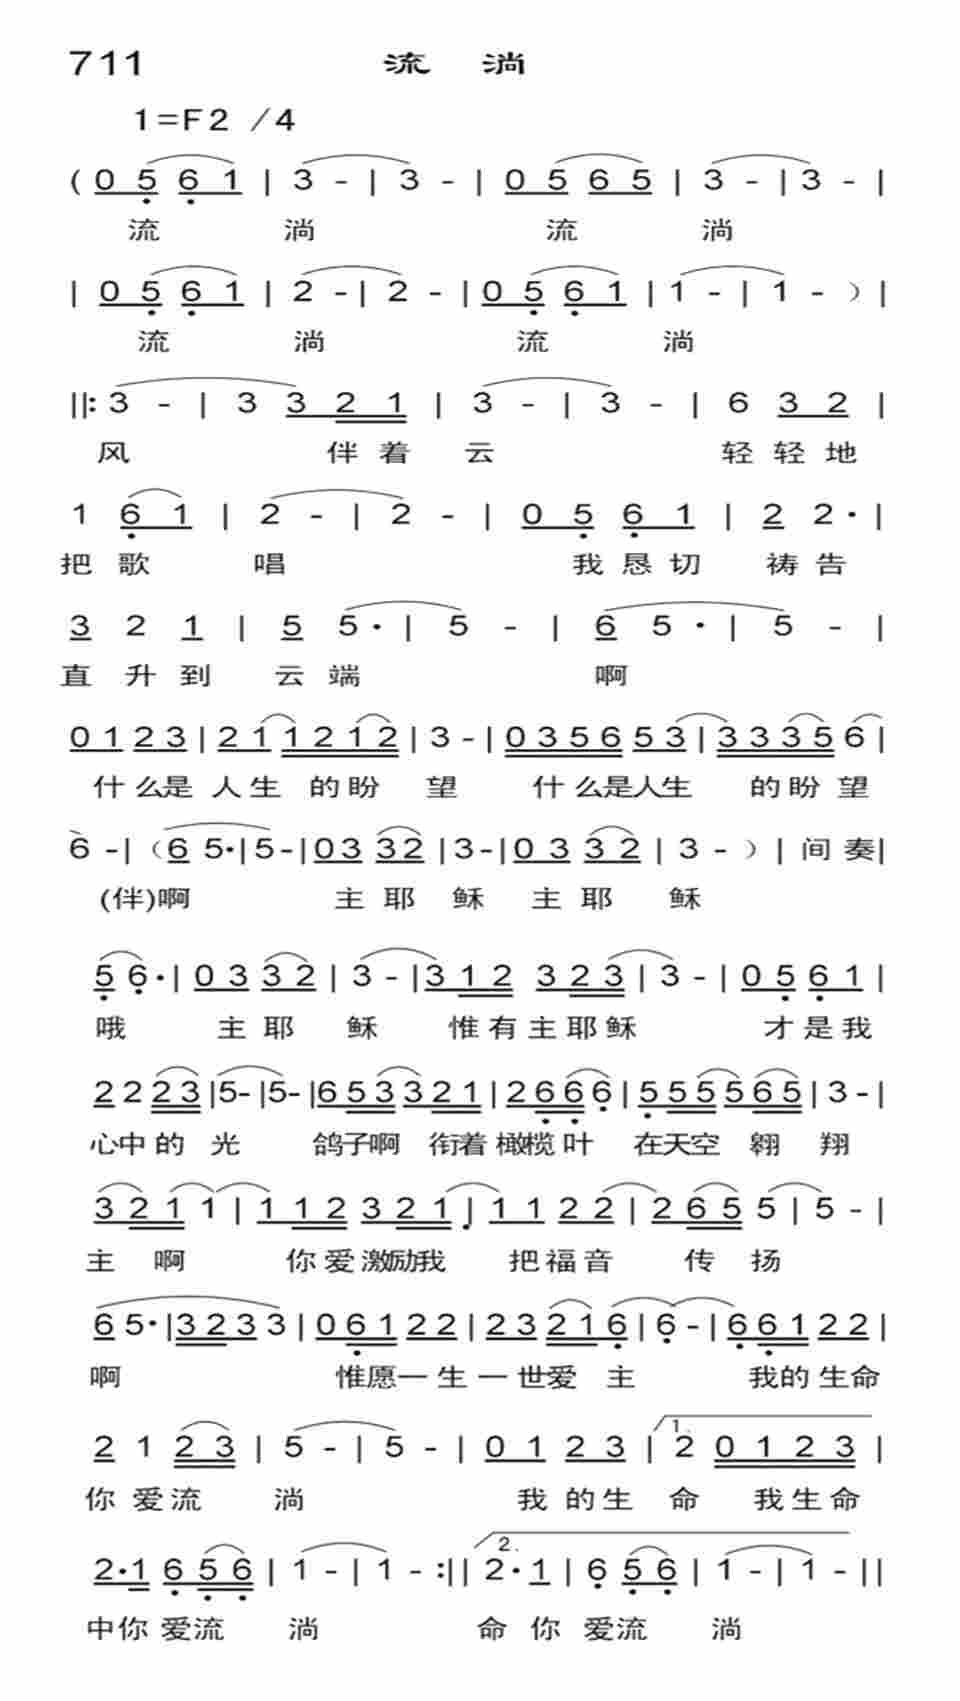 711 流 淌
1=F2 /4
(0 5 6 1 | 3 - | 3 - | 0 5 6 5 | 3 - | 3 - |
流 淌 流 淌
| 0 5 6 1 | 2 - | 2 - | 0 5 6 1 | 1 - | 1 - ) |
流 淌 流 淌
||: 3 - | 3 3 2 1 | 3 - | 3 - | 6 3 2 |
风 伴 着 云 轻 轻 地
1 6 1 | 2 - | 2 - | 0 5 6 1 | 2 2· |
把 歌 唱 我 恳 切 祷 告
3 2 1 | 5 5· | 5 - | 6 5 · | 5 - |
直 升 到 云 端 啊
0 1 2 3 | 2 1 1 2 1 2 | 3 - | 0 3 5 6 5 3 | 3 3 3 5 6 |
什 么是 人 生 的 盼 望 什 么是人生 的 盼 望
6 - | (6 5· | 5 - | 0 3 3 2 | 3 - | 0 3 3 2 | 3 - ) | 间 奏 |
(伴)啊 主 耶 稣 主 耶 稣
5 6· | 0 3 3 2 | 3 - | 3 1 2 3 2 3 | 3 - | 0 5 6 1 |
哦 主 耶 稣 惟 有 主 耶 稣 才 是 我
2 2 2 3 | 5 - | 5 - | 6 5 3 3 2 1 | 2 6 6 6 | 5 5 5 5 6 5 | 3 - |
心中 的 光 鸽子啊 衔着 橄榄 叶 在天空 翱 翔
3 2 1 1 | 1 1 2 3 2 1 | 1 1 2 2 | 2 6 5 5 | 5 - |
主 啊 你 爱 激励我 把 福 音 传 扬
6 5· | 3 2 3 3 | 0 6 1 2 2 | 2 3 2 1 6 | 6 - | 6 6 1 2 2 |
啊 惟愿一 生 一 世爱 主 我的 生命
2 1 2 3 | 5 - | 5 - | 0 1 2 3 | 1. 2 0 1 2 3 |
你 爱 流 淌 我 的 生 命 我 生 命
2·1 6 5 6 | 1 - | 1 - :|| 2. 2·1 | 6 5 6 | 1 - | 1 - ||
中你 爱流 淌 命 你 爱流 淌